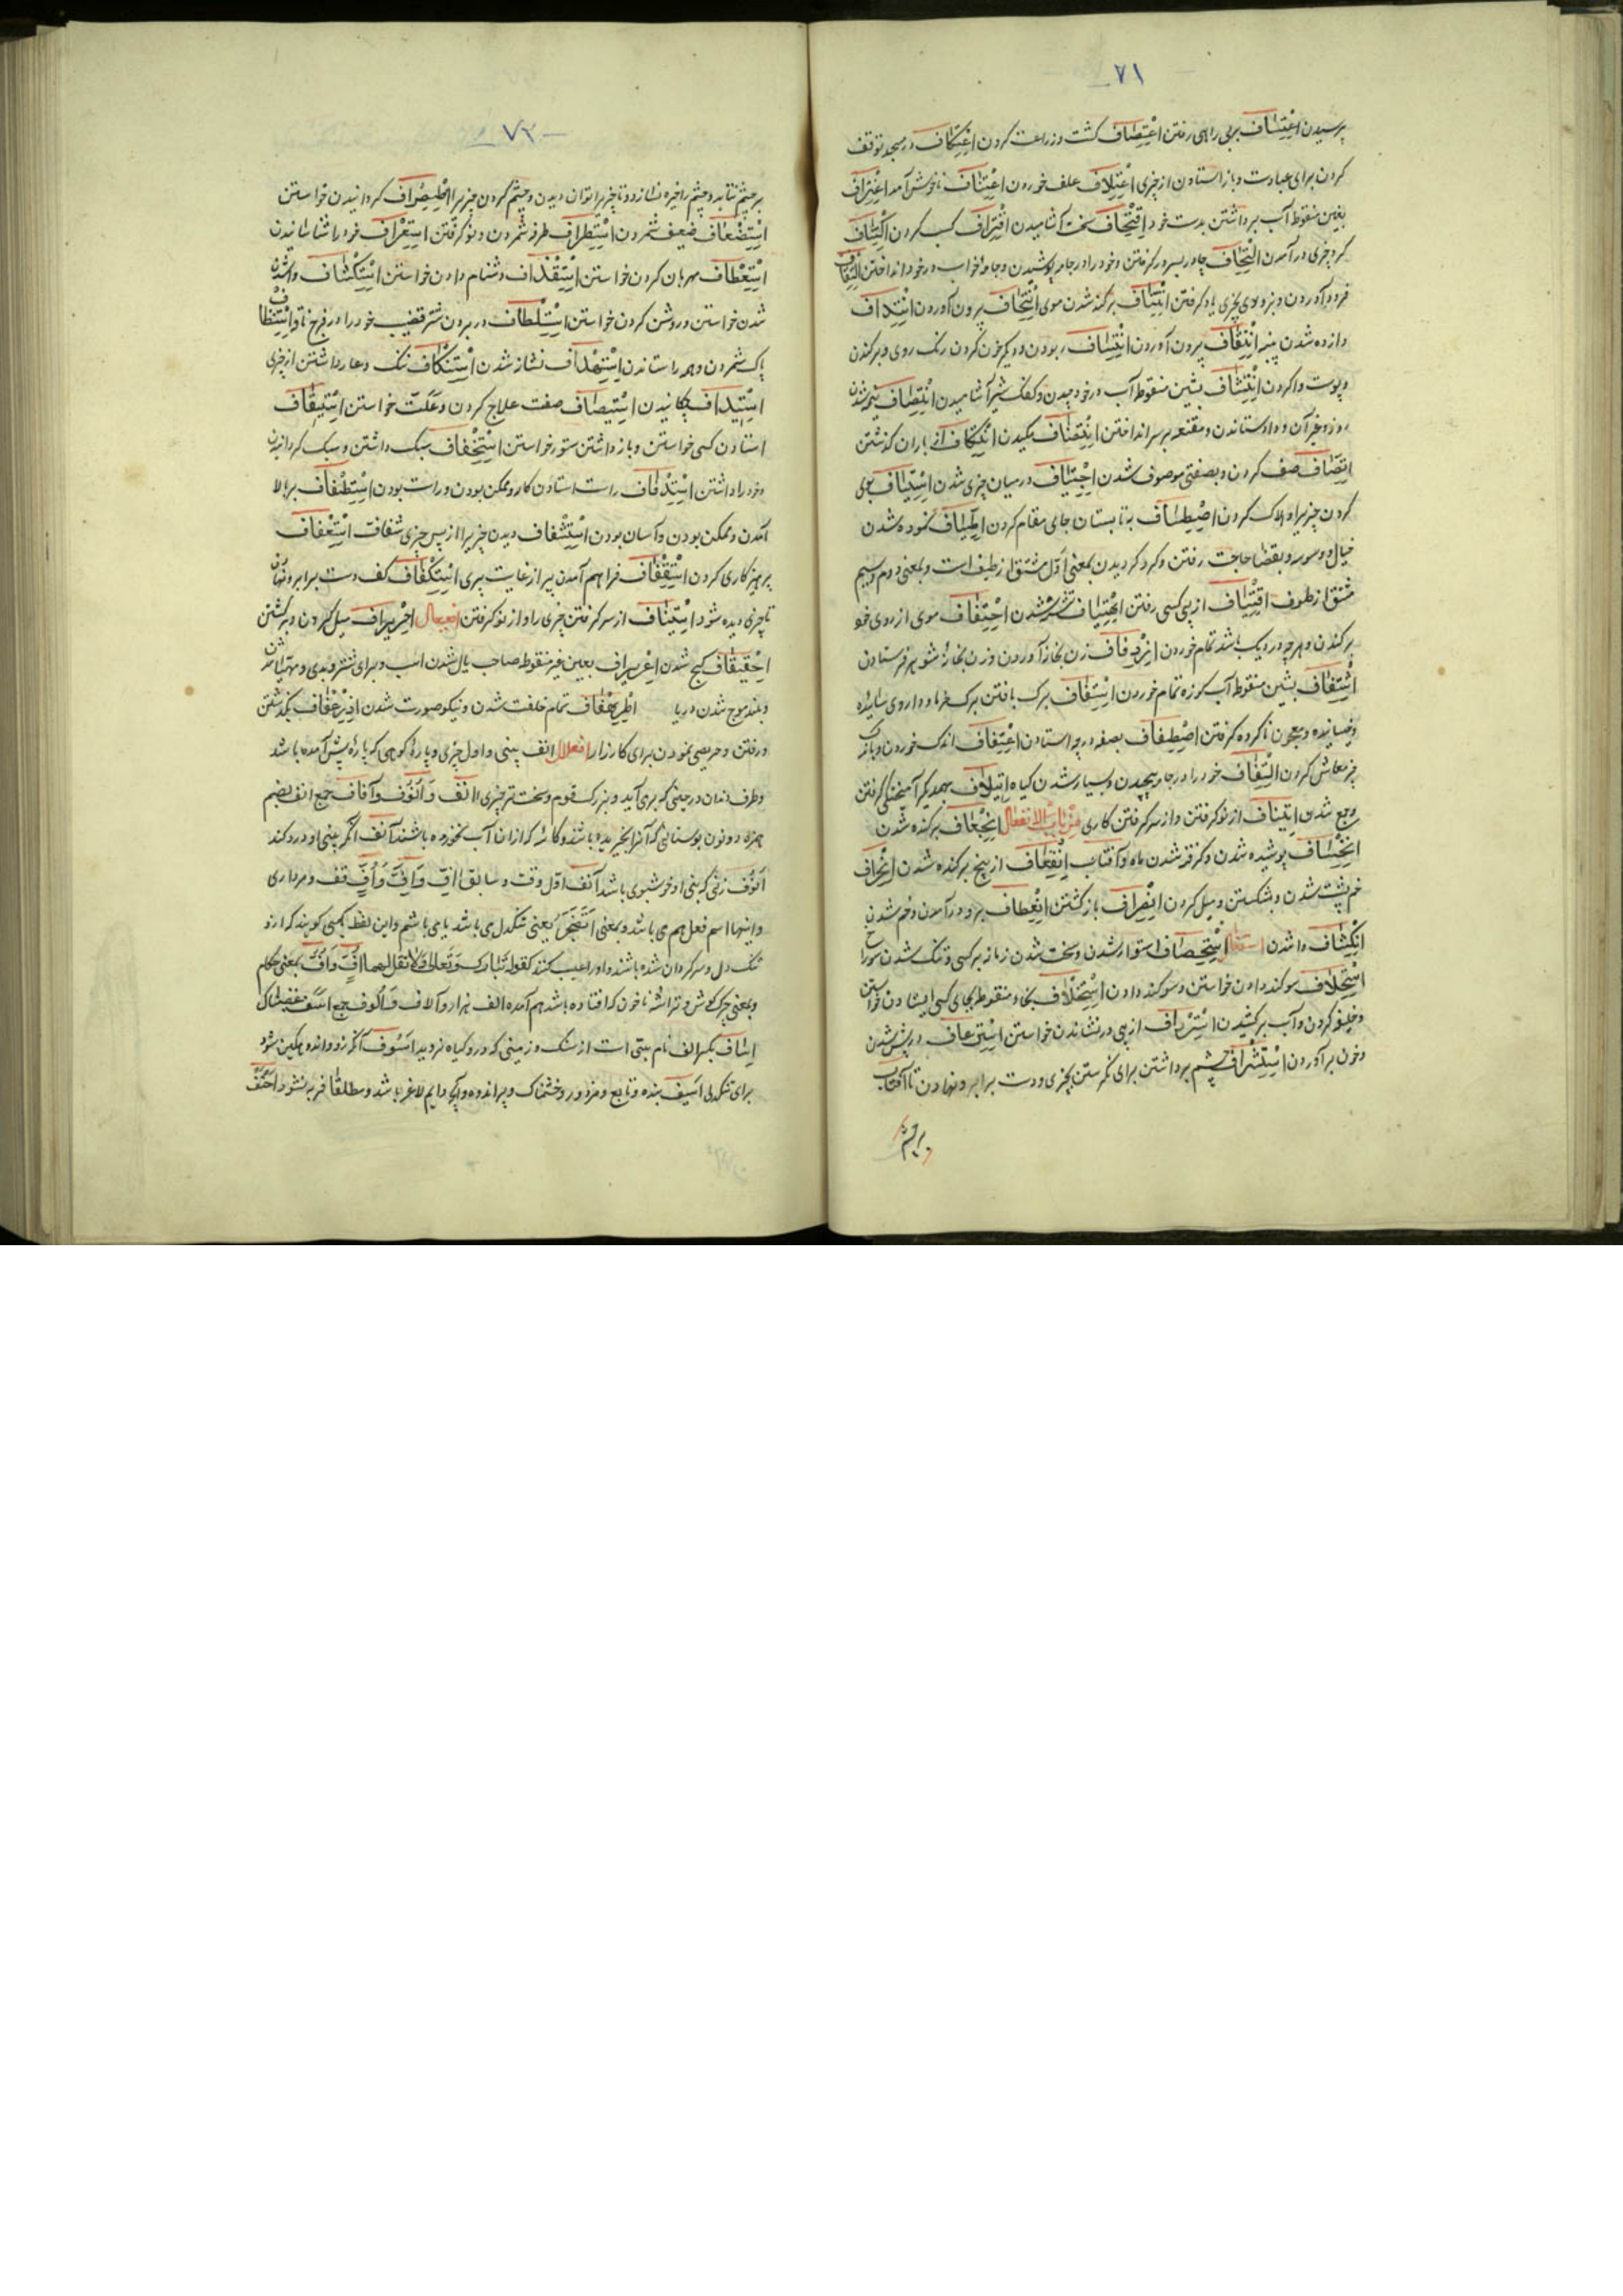 ٧١
پرسیدن اعْتِسَاف بربی راهی رفتن اعْتِصَاف کشت و زراعت کردن اعْتِکَاف در مسجد توقف
کردن برای عبادت و باز استادن از چیزی اعْتِلَاف علف خوردن اعْتِنَاف ناخوش آمدن اغْتِرَاف
بغین منقوطه آب برداشتن بدست خود اقْتِحَاف سخت آشامیدن اقْتِرَاف کسب کردن اکْتِنَاف
کرد چیزی در آمدن الْتِحَاف چادر بسر در کرفتن و خود را در جامه پوشیدن و جامه خواب در خود انداختن
فرو آوردن و بزودی چیزی یاد کرفتن انْتِتَاف برکنده شدن موی انْتِجَاف بیرون آوردن انْتِدَاف
دازده شدن پنبه انْتِقَاف بیرون آوردن انْتِسَاف ربودن و دیکرکون کردن رنک روی و برکندن
و پوست وا کردن انْتِشَاف بشین منقوطه آب در خود چیدن و کفک شیر آشامیدن انْتِصَاف نیمه شدن
روز و غیر آن و داد ستاندن و مقنعه بر سر انداختن مکیدن انْتِکَاف از باران کذشتن
اتِّصَاف صف کردن و بصفتی موصوف شدن اجْتِیَاف در میان چیزی شدن اسْتِیَاف بوی
کردن چیزیرا و هلاک کردن اصْطِیَاف به تابستان جای مقام کردن نموده شدن
خیال و وسوسه و بقضا حاجت رفتن و کرد کردیدن بمعنی اوّل مشتق از طیف است و بمعنی دوم و سیم
مشتق از طوف اقْتِیَاف از پی کسی رفتن شدن احْتِفَاف موی از روی خود
برکندن و هرچه در دیک باشد تمام خوردن ازْدِفَاف زن بخانه آوردن و زن بخانهٔ شوهر فرستادن
اشْتِفَاف بشین منقوطه آب کوزه تمام خوردن اسْتِفَاف برک بافتن برک خرما و داروی سائیده
و خیسانیده و معجون ناکرده کرفتن اصْطِفَاف بصف در چه استادن اعْتِفَاف اندک خوردن
چیز معاش کردن الْتِفَاف خود را در جامه پیچیدن و بسیار شدن کیاه ایتِلَاف بهمدیکر آمیختکی کرفتن
و جمع شدن ایتِنَاف از نو کرفتن و از سر کرفتن کاری مِنْ بَابِ الانفعال انْجِعَاف برکنده شدن
انْخِسَاف پوشیده شدن و کرفته شدن ماه و آفتاب انْقِعَاف از بیخ برکنده شدن انْحِرَاف
خم پشت شدن و شکستن و میل کردن انْصِرَاف باز کشتن انْعِطَاف برو در آمدن و خم شدن
انْکِشَاف وا شدن استفعال اسْتِحْصَاف استوار شدن و سخت شدن زمانه بر کسی و تنک شدن سوراخ
اسْتِحْلَاف سوکند دادن خواستن و سوکند دادن اسْتِخْلَاف بخاء منقوطه بجای کسی ایستادن خواستن
و خلیفه کردن و آب برکشیدن اسْتِرْدَاف از پی در نشاندن خواستن اسْتِرْعَاف در پیش شدن
و خون بر آوردن اسْتِشْرَاف چشم برداشتن برای نکرستن بچیزی و دست برابر و نهادن تا آفتاب
بر چشم
٧٢
بر چشم نتابد و چشم را خیره نسازد و تا چیزیرا توان دیدن و چشم کردن چیزیرا کردانیدن خواستن
اسْتِضْعَاف ضعیف شمردن اسْتِطْرَاف طرفه شمردن و نو کرفتن اسْتِعْرَاف خود را شناسانیدن
اسْتِعْطَاف مهربان کردن خواستن اسْتِقْذَاف دشنام دادن خواستن اسْتِکْشَاف وا شدن
شدن خواستن و روشن کردن خواستن اسْتِلْطَاف در بردن شتر قضیب خود را در فرج ناقه اسْتِنْظَاف
پاک شمردن و همه را ستاندن اسْتِهْدَاف نشانه شدن اسْتِنْکَاف ننک و عار داشتن از چیزی
اسْتِیدَاف چکانیدن اسْتِیصَاف صفت علاج کردن و علّت خواستن اسْتِیقَاف
استادن کسی خواستن و باز داشتن ستور خواستن اسْتِخْفَاف سبک داشتن و سبک کردانیدن
و خود را داشتن اسْتِدْفَاف راست استادن کار و ممکن بودن و راست بودن اسْتِطْفَاف بر بالا
آمدن و ممکن بودن و آسان بودن اسْتِشْفَاف دیدن چیزیرا از پس چیزی شفافت اسْتِعْفَاف
پرهیزکاری کردن اسْتِقْفَاف فراهم آمدن پیر از غایت پیری اسْتِکْفَاف کف دست برابرو نهادن
تا چیزی دیده شود اسْتِینَاف از سر کرفتن چیزی را و از نو کرفتن افعیعال احْرِیرَاف میل کردن و برکشتن
احْقِیقَاف کج شدن اعْرِیرَاف بعین غیر منقوطه صاحب یال شدن اسب
و بلند موج شدن دریا اطْرِهْفَاف تمام خلقت شدن و نیکو صورت شدن اذْرِعْفَاف بکذشتن
و رفتن و حریصی نمودن برای کارزار افعلال انف بینی و اول چیزی و پارهٔ کوهی که پارهٔ پیش آمده باشد
و طرف دندان در جینی که برمی آید و بزرک قوم و سخت تر چیزی انف وَ اُنُوف وَ آنَاف جمع انف بضم
همزه و نون بوستانی که آنرا نچریده باشند و کاسهٔ که از ان آب نخورده باشند آنِف آنکه بینی او درد کند
اَنُوف زنی که بینی او خوشبوی باشد آنف اوّل وقت و سابق اُفّ وَ اُفٍّ قف و مرداری
و اینها اسم فعل هم می باشد و بمعنی اَتَضَجَّرُ یعنی تنکدل می باشد یا می باشم و این لفظ بکسی کویند که ازو
تنک دل و سرکردان شده باشند و او را عیب کنند کقوله تَبَارَکَ وَتَعَالٰی وَلَا تَقُلْ لهما اُفٍّ وَ اُفّ بمعنی هنکام
و بمعنی چرک کوش و تراشهٔ ناخن که افتاده باشد هم آمده الف هزار و آلاف وَ اُلُوف جمع اَسَف غضبناک
اِسَاف بکسر الف نام بتی است از سنک و زمینی که درو کیاه نروید اَسُوف آنکه زود اندوهکین شود
برای تنکدلی اَسِیف بنده و تابع و مزدور و خشمناک و پر اندوه و آنچه دایم لاغر باشد و مطلقاً فربه نشود